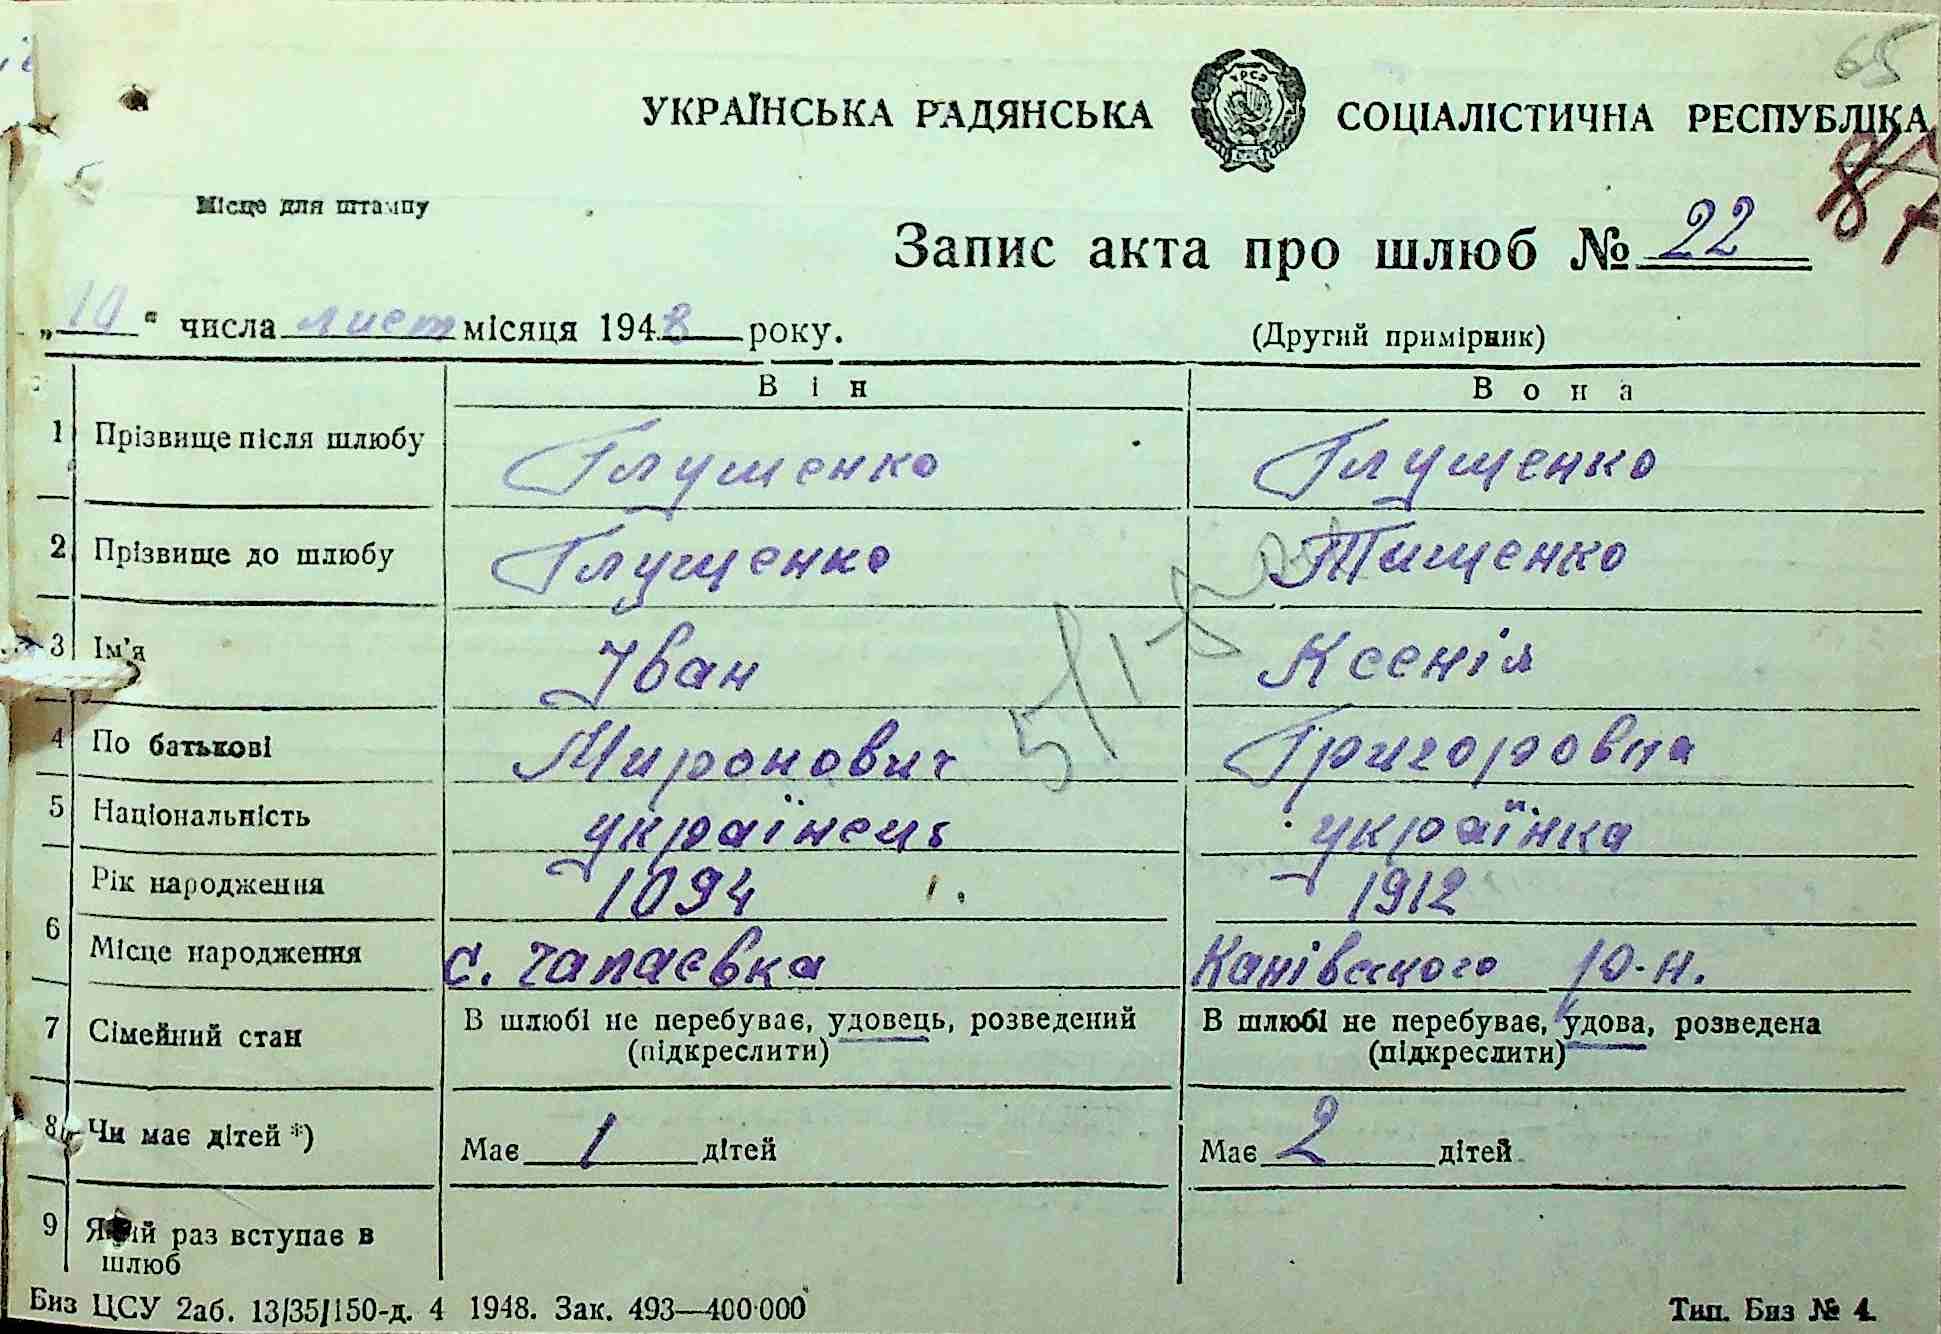 65
УКРАЇНСЬКА РАДЯНСЬКА СОЦІАЛІСТИЧНА РЕСПУБЛІКА
87
Місце для штампу
Запис акта про шлюб № 22
„10“ числа лист місяця 1948 року.
(Другий примірник)
Він Вона
1 Прізвище після шлюбу Глущенко Глущенко
2 Прізвище до шлюбу Глущенко Тищенко
3 Ім'я Іван Ксенія
4 По батькові Миронович Григоровна
5 Національність українець українка
6 Рік народження 1094 1912
Місце народження с. Чапаєвка Канівського р-н.
7 Сімейний стан В шлюбі не перебуває, удовець, розведений В шлюбі не перебуває, удова, розведена
(підкреслити) (підкреслити)
8 Чи має дітей *) Має 1 дітей Має 2 дітей
9 Який раз вступає в
шлюб
Биз ЦСУ 2аб. 13/35/150-д. 4 1948. Зак. 493—400·000 Тип. Биз № 4.